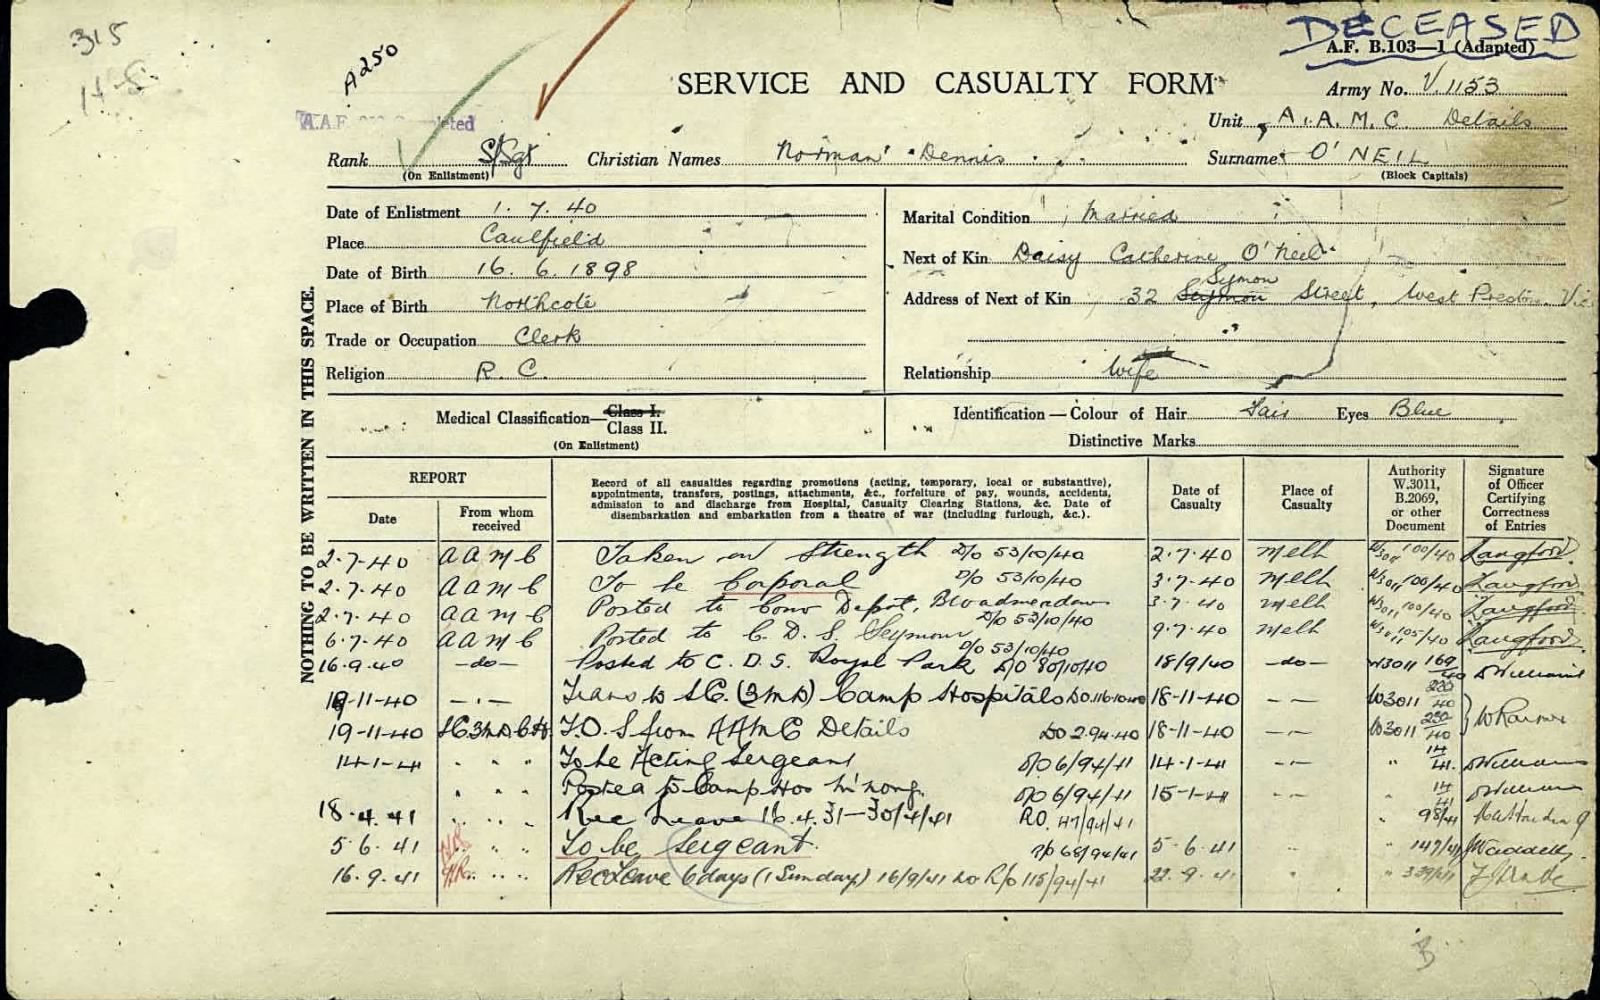 315
A250
DECEASED
A.F. B.103—1 (Adapted)
SERVICE AND CASUALTY FORM
Army No. V.1153
Unit A.A.M.C. Details
Rank S/Sgt Christian Names Norman Dennis Surname O'NEIL
(On Enlistment) (Block Capitals)
Date of Enlistment 1.7.40
Place Caulfield
Date of Birth 16.6.1898
Place of Birth Northcote
Trade or Occupation Clerk
Religion R.C.
Marital Condition Married
Next of Kin Daisy Catherine O'Neil
Symon
Address of Next of Kin 32 Seymour Street, West Preston. Vic
Relationship Wife
Medical Classification—Class I.
Class II.
(On Enlistment)
Identification—Colour of Hair Fair Eyes Blue
Distinctive Marks
NOTHING TO BE WRITTEN IN THIS SPACE.
REPORT
Date
From whom received
Record of all casualties regarding promotions (acting, temporary, local or substantive),
appointments, transfers, postings, attachments, &c., forfeiture of pay, wounds, accidents,
admission to and discharge from Hospital, Casualty Clearing Stations, &c. Date of
disembarkation and embarkation from a theatre of war (including furlough, &c.).
Date of Casualty
Place of Casualty
Authority W.3011, B.2069, or other Document
Signature of Officer Certifying Correctness of Entries
2.7.40 AAMC Taken on Strength D/o 53/10/40 2.7.40 Melb W3011 100/40 Langford
2.7.40 AAMC To be Corporal D/o 53/10/40 3.7.40 Melb W3011 100/40 Langford
2.7.40 AAMC Posted to Conv Depot, Broadmeadows D/o 53/10/40 3.7.40 Melb W3011 100/40 Langford
6.7.40 AAMC Posted to C.D.S. Seymour D/o 53/10/40 9.7.40 Melb W3011 105/40 Langford
16.9.40 —do— Posted to C.D.S. Royal Park D/O 80/10/40 18/9/40 —do— W3011 169/40 Williams
19-11-40 Trans to SC. (3MD) Camp Hospitals DO 116/10/40 18-11-40 W3011 230/40
19-11-40 SC3MDCH T.O.S from AAMC Details DO 2.94.40 18-11-40 W3011 230/40
14-1-41 " " " To be Acting Sergeant D/O 6/94/41 14.1.41 " 14/41 Williams
" " " Posted to Camp Hos D/O 6/94/41 15-1-41 " 14/41 Williams
18.4.41 Rec Leave 16.4.31—30/4/41 RO. 47/94/41 " 98/41
5.6.41 To be Sergeant. R/o 68/94/41 5.6.41 " 147/41 Waddell
16.9.41 Rec Leave 6 days (1 Sunday) 16/9/41 to R/o 115/94/41 22.9.41 " 339/41
B